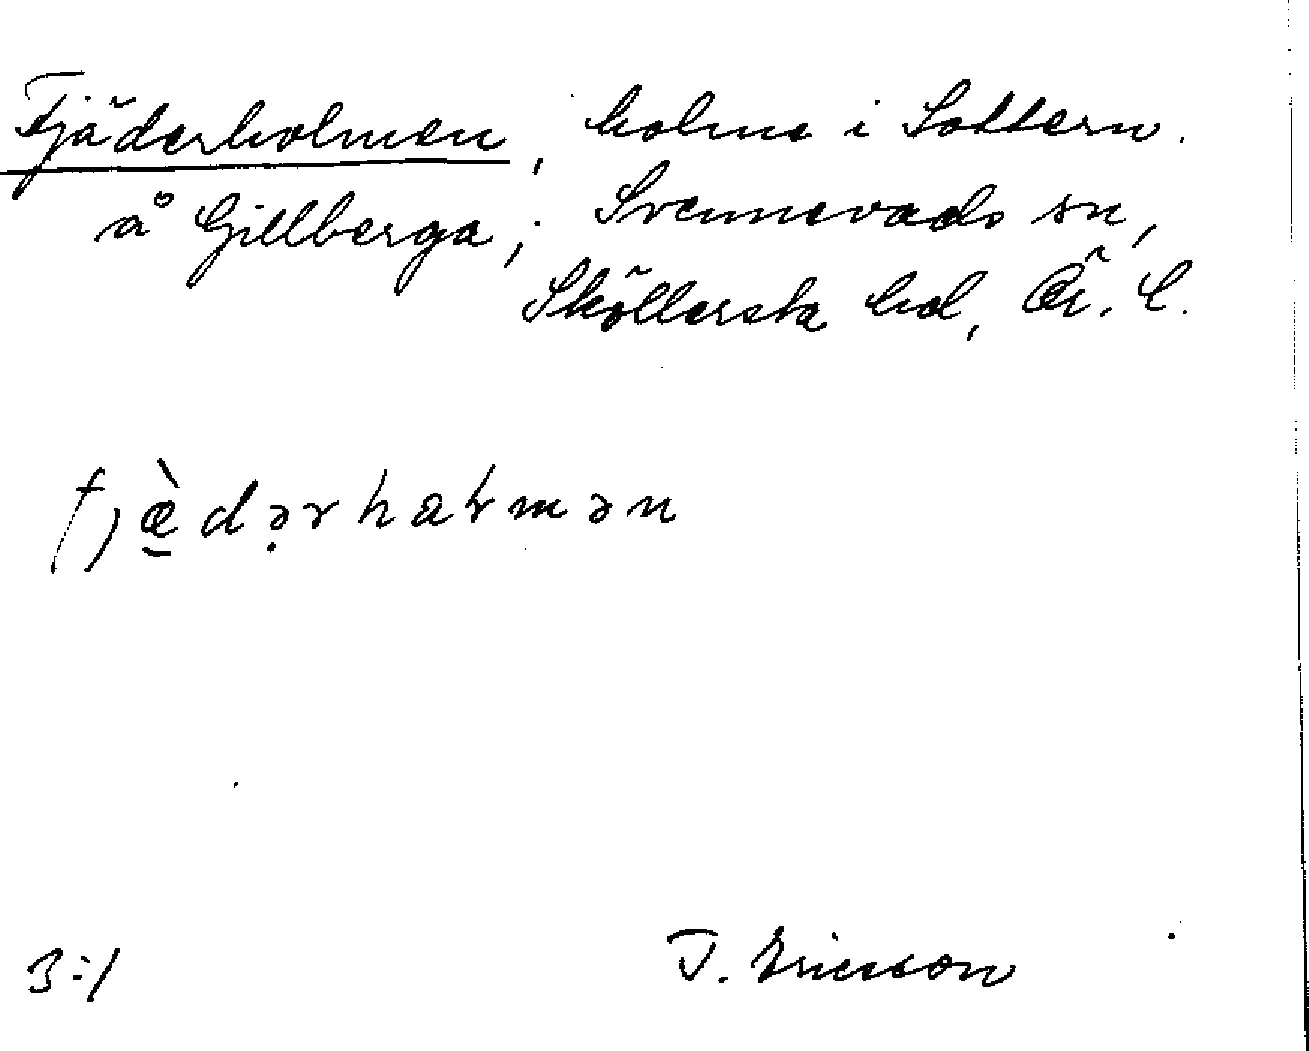 Fjäderholmen, holme i Sottern.
å Gillberga, Svennevads sn,
Sköllersta hd, Ör. l.
fjæ̠̀də̣rhaɫmən
3:/
T. Ericsson